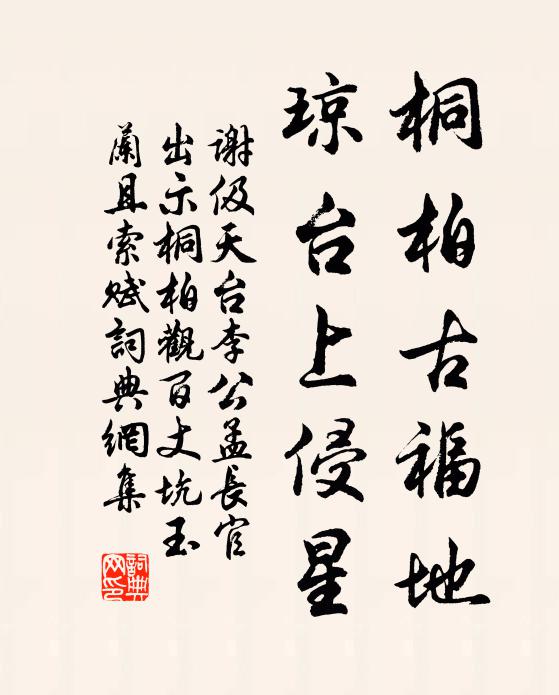 桐柏古福地
琼台上侵星
谢伋天台李公孟長官
出示桐柏觀百丈坑玉
蘭且索賦詞典網集
詞典網印